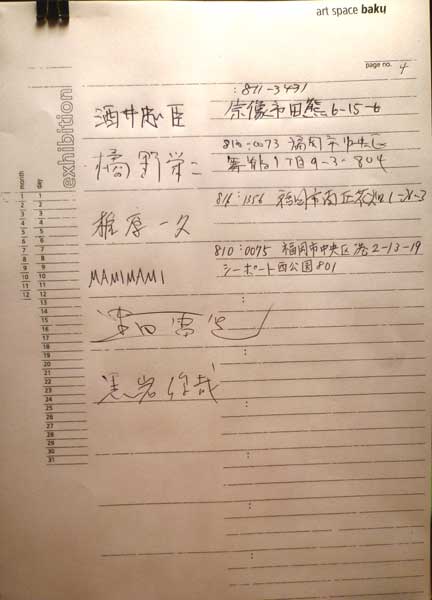 art space baku
page no. 4
exhibition
month
day
1
2
3
4
5
6
7
8
9
10
11
12
1
2
3
4
5
6
7
8
9
10
11
12
13
14
15
16
17
18
19
20
21
22
23
24
25
26
27
28
29
30
31
:811-3431
酒井忠臣 宗像市田熊6-15-6
810:0073 福岡市中央区
橘野栄二 舞鶴1丁目9-3-804
椎原一久 福岡市南区
810:0075 福岡市中央区港2-13-19
MAMIMAMI シーポート西公園801
黒岩 哉